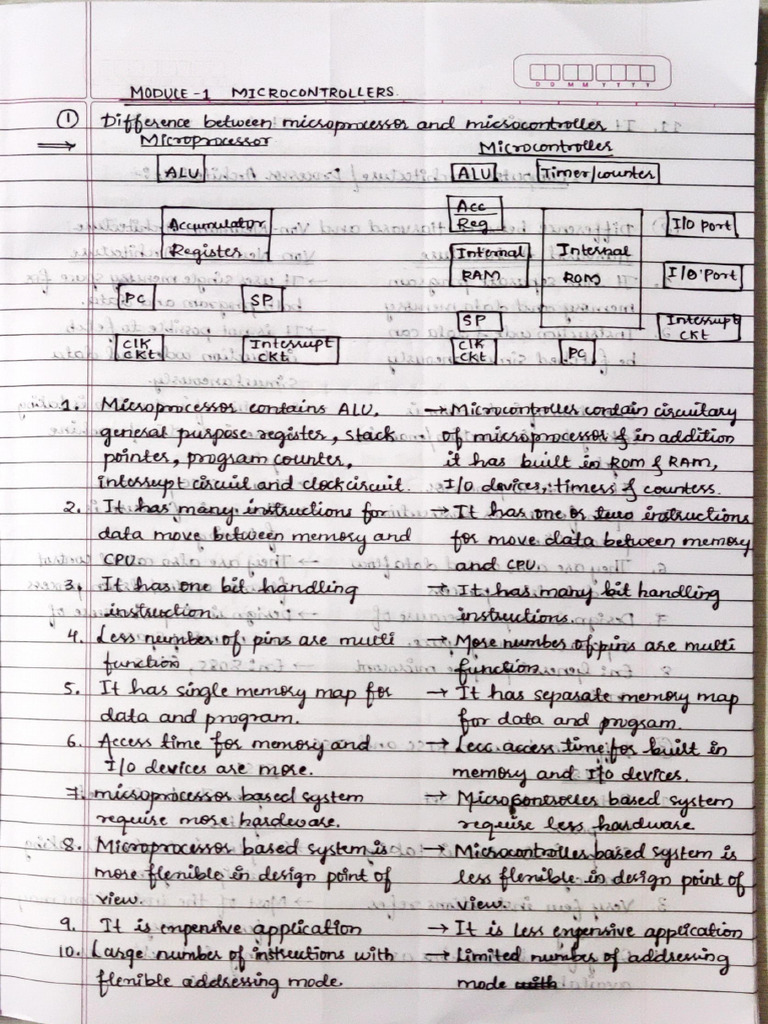 D D M M Y Y Y Y
MODULE-1 MICROCONTROLLERS.
① Difference between microprocessor and microcontroller
⇒ Microprocessor
Microcontroller
ALU
Accumulator
Register
PC SP
Clk Interrupt
CKt CKt
ALU Timer/counter
Acc
Reg
Internal
RAM
Internal
ROM
I/O port
I/O Port
SP
Interrupt
CKt
Clk
CKt
PC
1. Microprocessor contains ALU,
general purpose register, stack
pointer, program counter,
interrupt circuit and clock circuit.
→ Microcontroller contain circuitary
of microprocessor & in addition
it has built in ROM & RAM,
I/O devices, timers & counters.
2. It has many instructions for
data move between memory and
CPU.
→ It has one or two instructions
for move data between memory
and CPU.
3. It has one bit handling
instruction.
→ It has many bit handling
instructions.
4. Less number of pins are multi
function.
→ More number of pins are multi
function.
5. It has single memory map for
data and program.
→ It has separate memory map
for data and program.
6. Access time for memory and
I/O devices are more.
→ Less access time for built in
memory and I/O devices.
7. microprocessor based system
require more hardware.
→ Microcontroller based system
require less hardware
8. Microprocessor based system is
more flexible in design point of
view.
→ Microcontroller based system is
less flexible in design point of
view.
9. It is expensive application
→ It is less expensive application
10. Large number of instructions with
flexible addressing mode.
→ Limited number of addressing
mode with